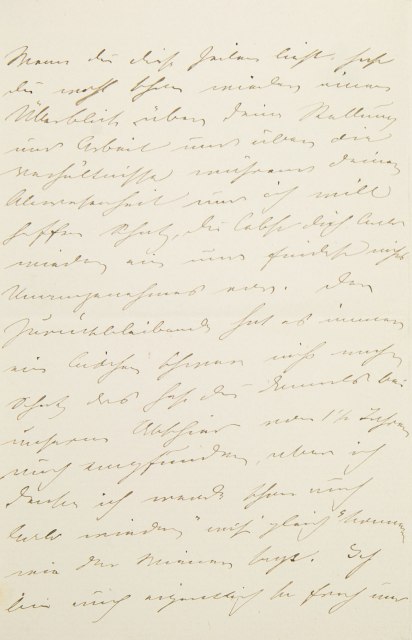 Wenn du diese Zeilen liest, hast
du wohl schon wieder einen
Überblick über deine Stellung
und Arbeit und über die
Verhältnisse während deiner
Abwesenheit und ich will
hoffen Schatz, du lebst dich bald
wieder ein und findest nichts
Unangenehmes vor. Der
Zurückbleibende hat es immer
ein bischen schwerer nicht wahr
Schatz das hast du damals bei
unserem Abschied vor 1½ Jahren
auch empfunden, aber ich
denke ich werde schon auch
bald wieder "ins Gleich" kommen
wie der Wiener sagt. Ich
bin auch eigentlich so froh und